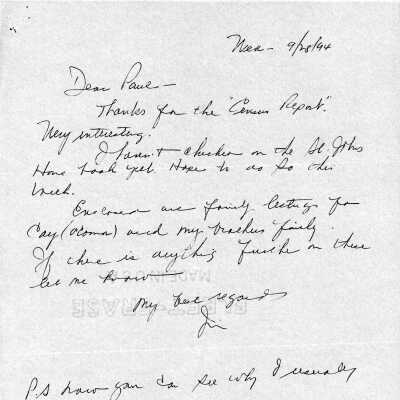 Wed - 9/28/94
Dear Paul -
Thanks for the "Census Report".
Very interesting.
I haven't checked on the St. Johns
Home book yet. Hope to do so this
week.
Enclosed are family listings for
Cay ( ) and my brothers family.
If there is anything further on these
let me know
My best regards
Jim
P.S. now you can see why I usually